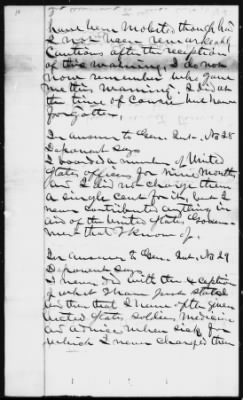 have been Mobbed, though had
I not been remarkably
Cautious after the reception
of this warning, I do not
now remember who gave
me this warning. I did at
the time of Course but have
forgotten.
In answer to Gen. Int. No 28
Deponent Says
I boarded a number of United
States officers for nine months
and I did not charge them
a single cent for it, and I
never contributed anything in
aid of the United States Govern-
ment that I know of.
In answer to Gen. Int. No 29
Deponent Says
I never did with the exception
of what I have just stated
further that I have often given
United States soldiers, Medicine
and advice when sick for
which I never charged them